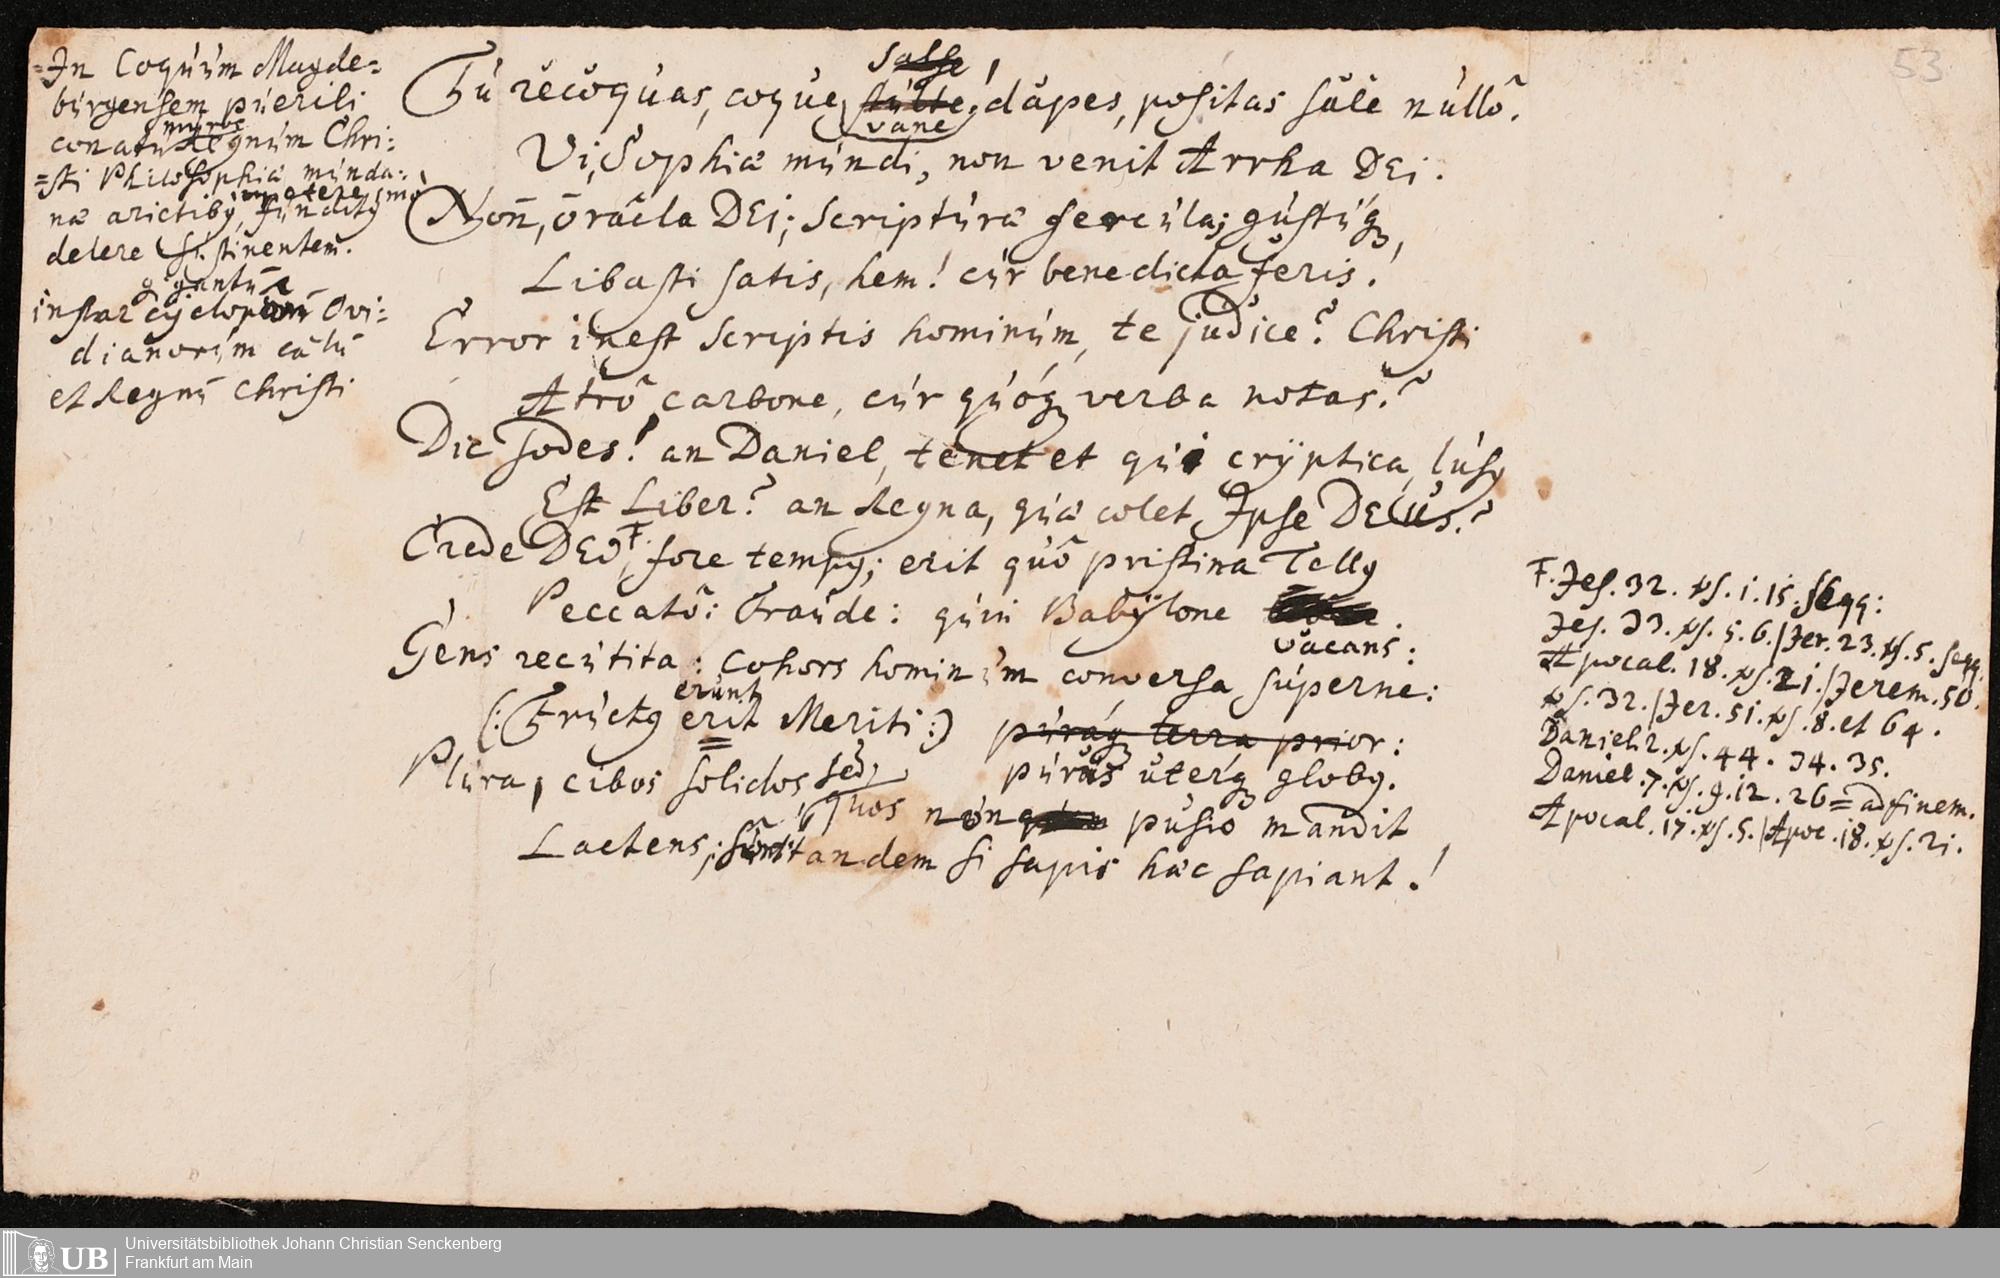 53
In Coquum Magde=
burgensem puerili
conatu Regnum Chri:
muros
=sti Philosophiæ munda:
næ arietibꝫ, funditꝫ
delere
instar
gigantū
Ovi:
dianorum cœlū
et Regnū Christi
salse
Tu recoquas, coque, stulte! dapes, positas sale nullô.
vane
Vi, Sophiæ mundi, non venit Arrha DEi.
Non, oracla DEi; Scripturæ fercula; gustúqꝫ,
Libasti satis, hem! cur benedicta feris!
Error inest scriptis hominum, te judice? Christi
Atrô carbone, cur quóqꝫ verba notas?
Dic sodes! an Daniel, tenet et qui cryptica, lusꝫ
Est Liber? an Regna, quæ colet Ipse DEUS?
Crede DEO, fore tempꝫ; erit quô pristina Tellꝫ
Peccatô: Fraude: quin Babylone
vacans:
Gens recutita: cohors hominum conversa superne:
erunt
(: Fructꝫ erit Meriti :) puraqꝫ terra prior:
purus uterqꝫ globꝫ.
Plura, cibos solidos sed
quos non pusio mandit
Lactens; tandem si sapis hæc sapiant!
Ŧ. Jes. 32. ꝟs. 1. 15. seqq:
Jes. 33. ꝟs. 5. 6. / Jer. 23. ꝟs. 5. seqq.
Apocal. 18. ꝟs. 21. / Jerem. 50.
ꝟs. 32. / Jer. 51. ꝟs. 8. et 64.
Daniel. 2. ꝟs. 44. 34. 35.
Daniel. 7. ꝟs. 9. 12. 26 = ad finem.
Apocal. 17. ꝟs. 5. / Apoc. 18. ꝟs. 21.
UB
Universitätsbibliothek Johann Christian Senckenberg
Frankfurt am Main